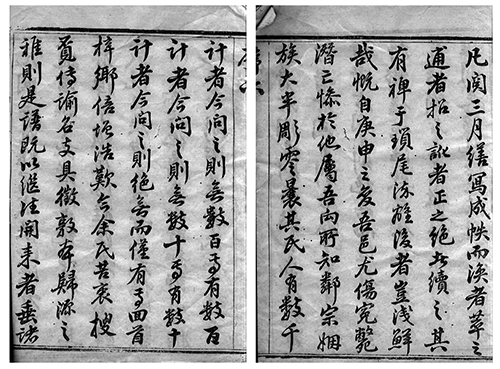 凡閱三月繕寫成帙而渙者萃之
逋者招之訛者正之絕者續之其
有裨于瑣尾流離後者豈淺鮮
哉慨自庚申之变吾邑尤傷斃
潛亡慘於他屬吾向所知鄰宗姻
族大半彫零曩其氏人有數千
計者今問之則無數百焉有數百
計者今問之則無數十焉有數十
計者今問之則絕無而僅有焉回首
梓鄉倍增浩歎今余氏苦衷搜
傳諭各支具徵敦本歸源之
雅則是譜既以繼往開來者垂諸